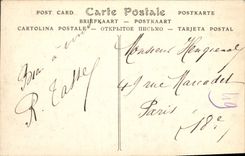 POST CARD Carte Postale POSTKARTE
BRIEFKAART POSTKAART
CARTOLINA POSTALE ОТКРЫТОЕ ПИСЬМО TARJETA POSTAL
Bien à vous
R. Tassel
Monsieur
49 rue Marcadet
Paris
18e